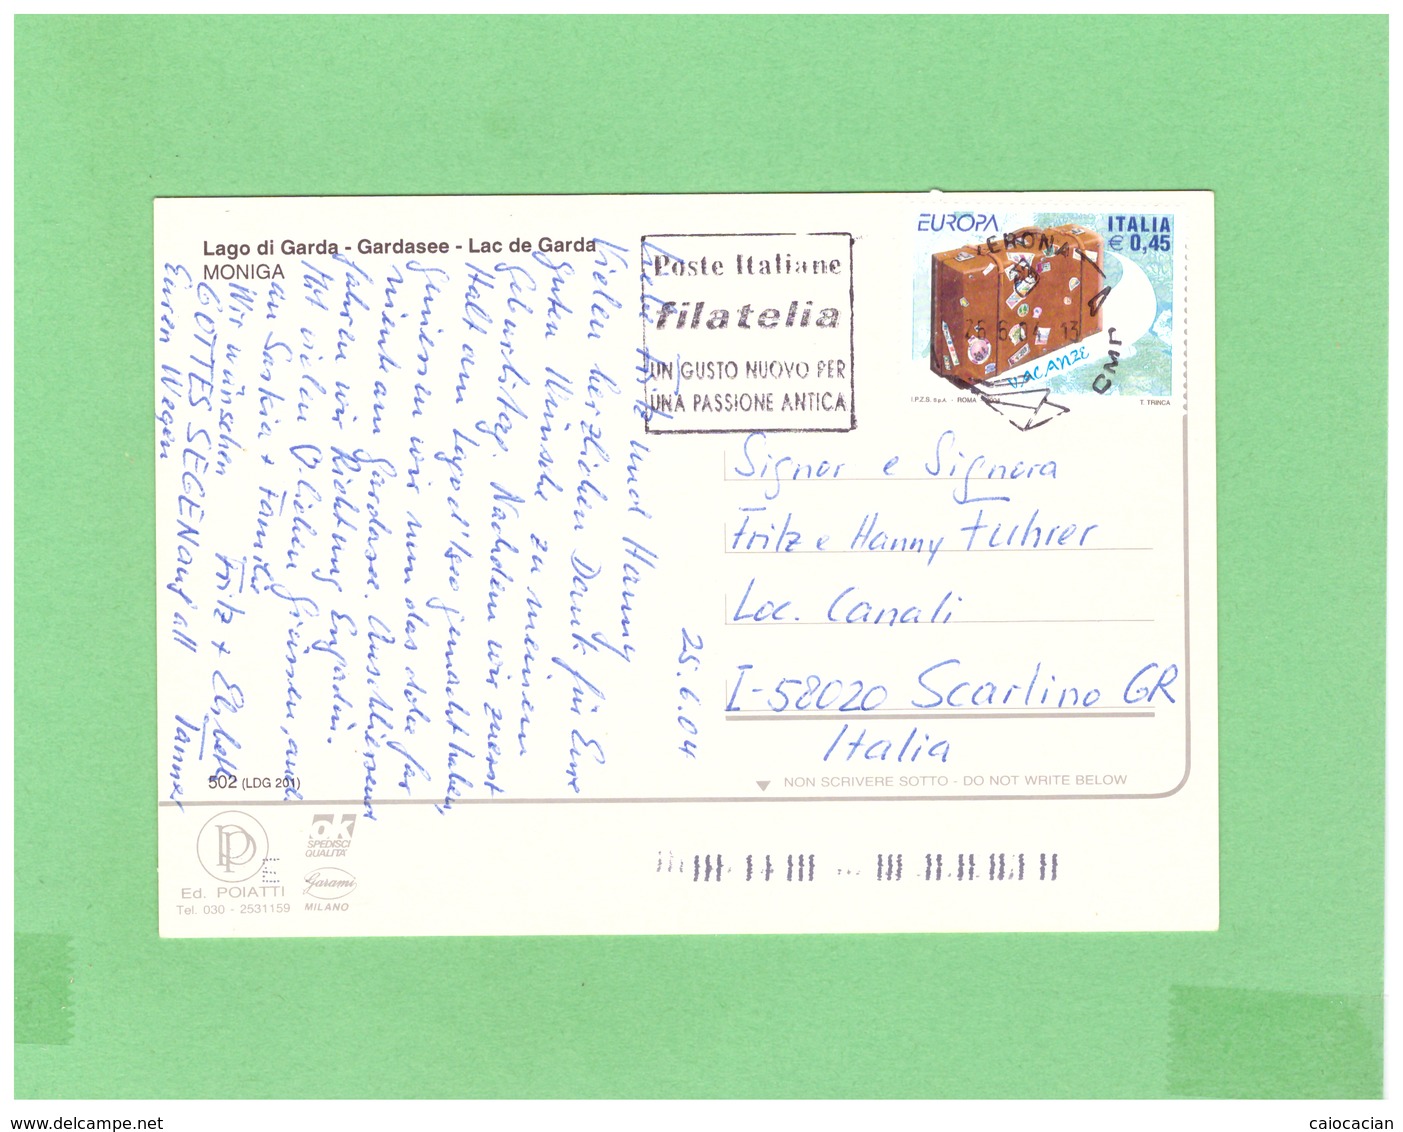 Lago di Garda - Gardasee - Lac de Garda
MONIGA
Poste Italiane
filatelia
UN GUSTO NUOVO PER
UNA PASSIONE ANTICA
EUROPA
ITALIA
€ 0,45
VERONA
CMP
26.6.04 13
VACANZE
I.P.Z.S. S.p.A. - ROMA
T. TRINCA
25.6.04
Liebe Fritz und Hanny
Vielen herzlichen Dank für Eure
guten Wünsche zu meinem
Geburtstag. Nachdem wir zuerst
Halt am Lago d'Iseo gemacht haben,
geniessen wir nun das dolce far
niente am Gardasee. Anschliessend
fahren wir Richtung Engadin.
Mit vielen lieben Grüssen, auch
an Saskia + Familie
Wir wünschen Fritz + Elsbeth
GOTTES SEGEN auf all Tanner
Euren Wegen
Signor e Signora
Fritz e Hanny Fuhrer
Loc. Canali
I-58020 Scarlino GR
Italia
502 (LDG 201)
NON SCRIVERE SOTTO - DO NOT WRITE BELOW
PP
E
Ed. POIATTI
Tel. 030 - 2531159
ok
SPEDISCI
QUALITA'
Garami
MILANO
www.delcampe.net
calocacian